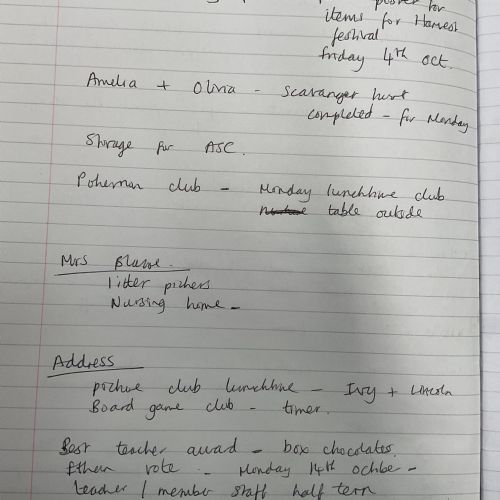 poster for
items for Harvest
festival
friday 4th oct.
Amelia + Olivia - scavanger hunt
completed - for Monday
Storage for ASC.
Pokemon club - Monday lunchtime club
table outside
Mrs
litter pickers
Nursing home -
Address
picture club lunchtime - Ivy + Lincoln
Board game club - timer.
Best teacher award - box chocolates.
Ethan vote - Monday 14th october -
teacher / member staff half term